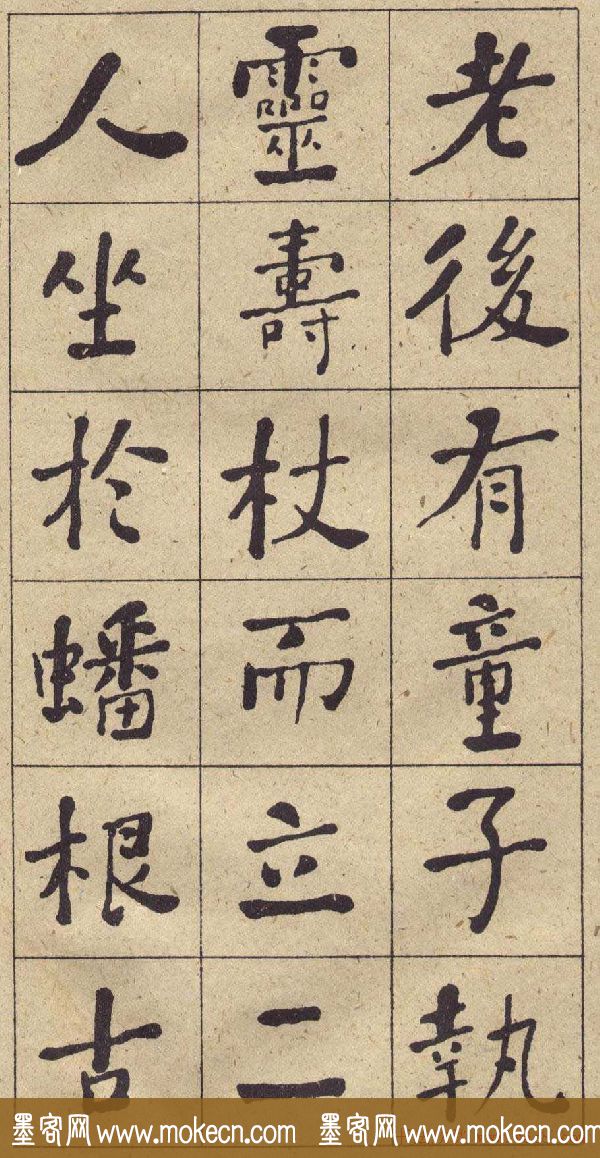 老後有童子執
靈壽杖而立二
人坐於蟠根古
墨客网 www.mokecn.com 墨客网 www.mokecn.com